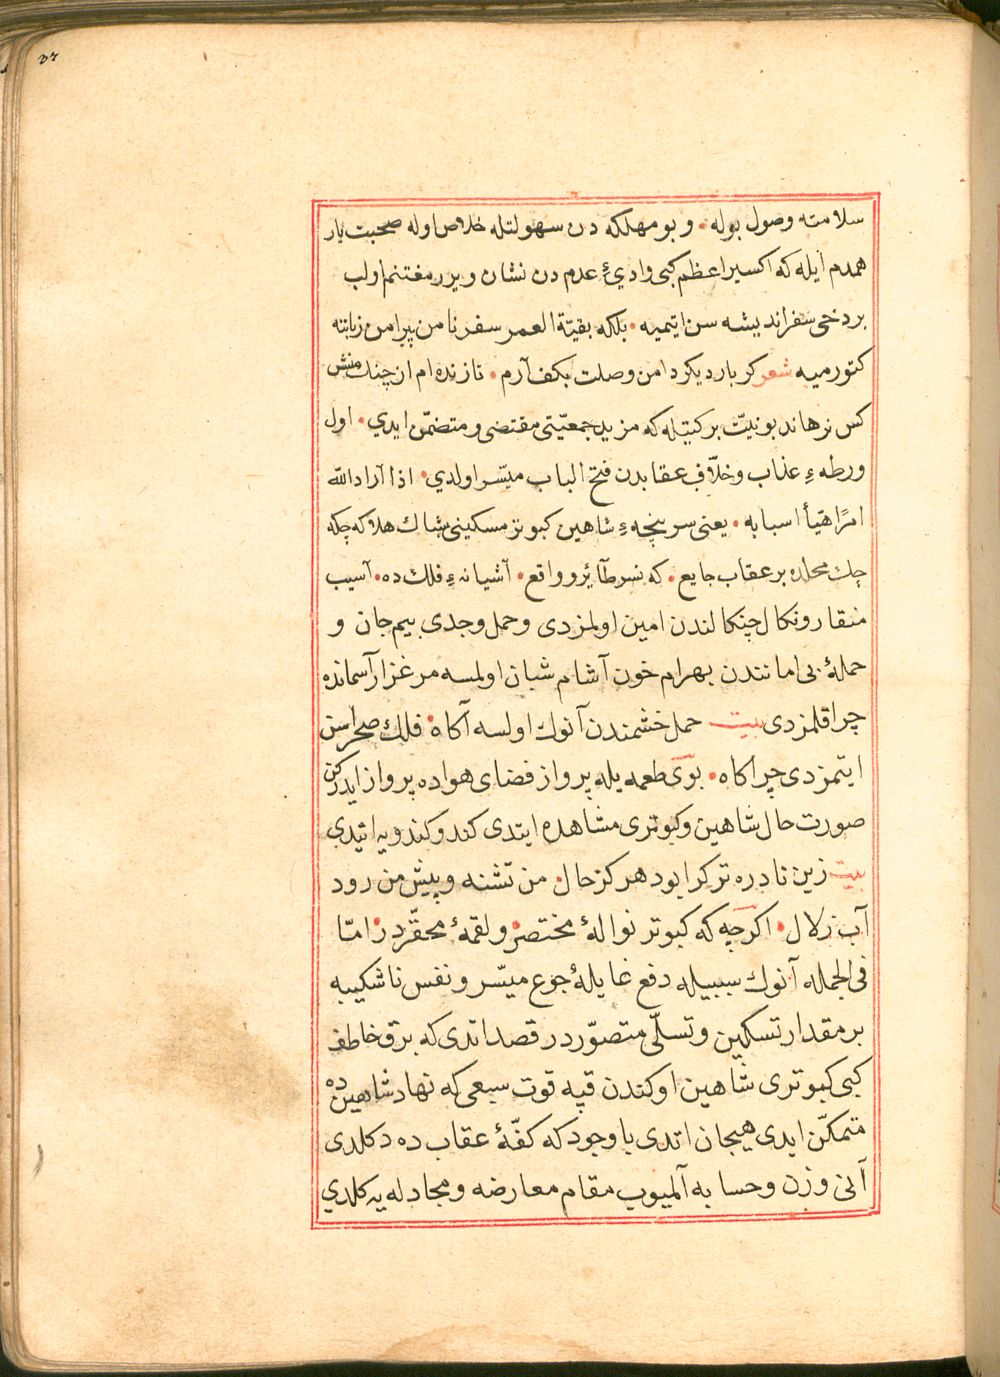 ٣٢
سلامته وصول بوله ۰ و بو مهلکه دن سهولتله خلاص اوله صحبت یار
همدم ایله که اکسیر اعظم کبی وادیٔ عدم دن نشان ویرر مغتنم اولب
بر دخی سفر اندیشه سن ایتمیه ۰ بلکه بقیّة العمر سفر نامن پیرامن زبانته
کتورمیه شعر کر بار دیکر دامن وصلت بکف آرم ۰ تا زنده ام از چنك منش
کس نرهاند بو نیّت برکتیله که مزید جمعیّتی مقتضی و متضمّن ایدي ۰ اول
ورطهٔ عذاب و خلّاف عقابدن فتح الباب میسّر اولدي ۰ اذا آراد الله
امرًا هیّأ اسبابه ۰ یعنی سر پنجهٔ شاهین کبوتر مسکینی شباك هلاکه چکه
چك محلده بر عقاب جایع ۰ که نسر طآئر و واقع ۰ آشیانهٔ فلك ده ۰ آسیب
منقار و نکال چنکالندن امین اولمزدی و حمل وجدی بیم جان و
حملهٔ بی اماننندن بهرام خون آشام شبان اولمسه مرغزار آسمانده
چرا قلمزدی بیت حمل خشمندن آنوك اولسه آکاه ۰ فلك صحراسن
ایتمزدی چراکاه ۰ بوی طعمه یله پرواز فضای هواده پرواز ایدرکن
صورت حال شاهین و کبوتری مشاهده ایتدی کندو کندویه ائیدی
بیت زین نادره تر کرا بود هرکز حال ۰ من تشنه و پیش من رود
آب زلال ۰ اکرچه که کبوتر نوالهٔ مختصر ۰ و لقمهٔ محقّردر ۰ امّا
فی الجمله آنوك سببیله دفع غایلهٔ جوع میسّر و نفس ناشکیبه
بر مقدار تسکین و تسلّی متصوّردر قصد اتدی که برق خاطف
کبی کبوتری شاهین اوکندن قپه قوت سبعی که نهاد شاهین ده
متمکّن ایدی هیجان اتدی با وجود که کفّهٔ عقاب ده دکلدی
آنی وزن و حسابه آلمیوب مقام معارضه و مجادله یه کلدي